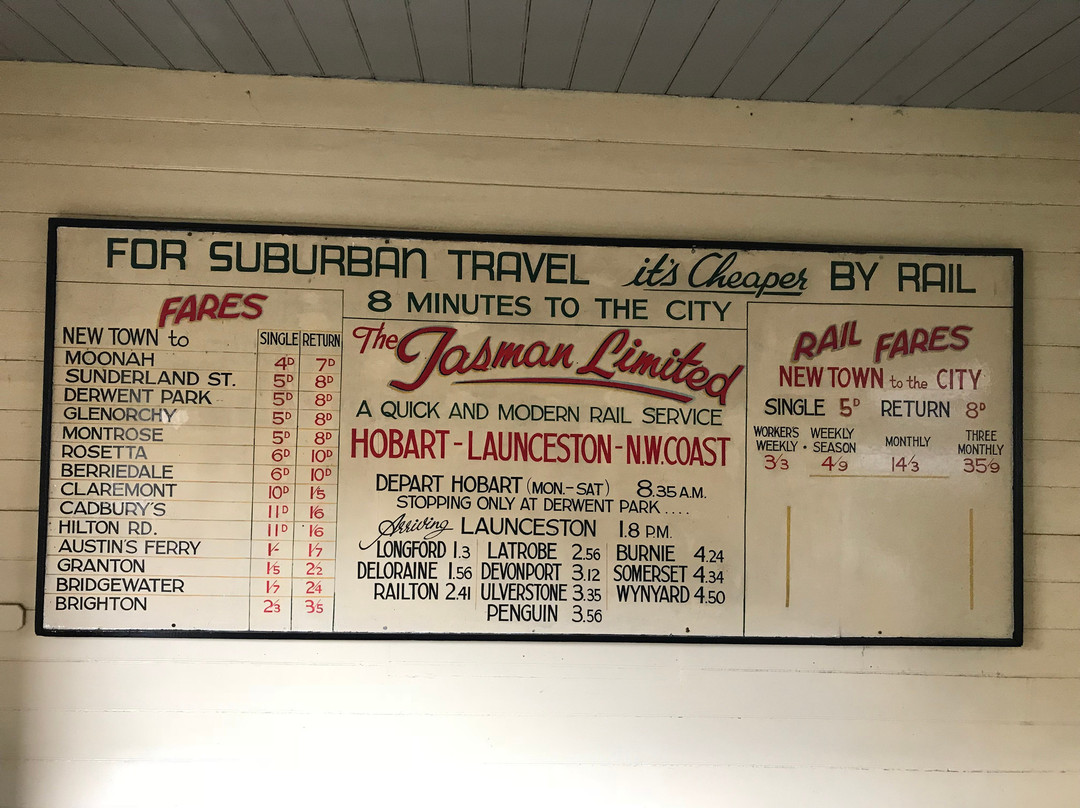 FOR SUBURBAN TRAVEL it's Cheaper BY RAIL
FARES
NEW TOWN to SINGLE RETURN
MOONAH 4D 7D
SUNDERLAND ST. 5D 8D
DERWENT PARK 5D 8D
GLENORCHY 5D 8D
MONTROSE 5D 8D
ROSETTA 6D 10D
BERRIEDALE 6D 10D
CLAREMONT 10D 1/5
CADBURY'S 11D 1/6
HILTON RD. 11D 1/6
AUSTIN'S FERRY 1/- 1/7
GRANTON 1/5 2/2
BRIDGEWATER 1/7 2/4
BRIGHTON 2/3 3/5
8 MINUTES TO THE CITY
The Tasman Limited
A QUICK AND MODERN RAIL SERVICE
HOBART - LAUNCESTON - N.W. COAST
DEPART HOBART (MON.-SAT) 8.35 A.M.
STOPPING ONLY AT DERWENT PARK ....
Arriving LAUNCESTON 1.8 P.M.
LONGFORD 1.3 LATROBE 2.56 BURNIE 4.24
DELORAINE 1.56 DEVONPORT 3.12 SOMERSET 4.34
RAILTON 2.41 ULVERSTONE 3.35 WYNYARD 4.50
PENGUIN 3.56
RAIL FARES
NEW TOWN to the CITY
SINGLE 5D RETURN 8D
WORKERS WEEKLY · WEEKLY SEASON MONTHLY THREE MONTHLY
3/3 4/9 14/3 35/9